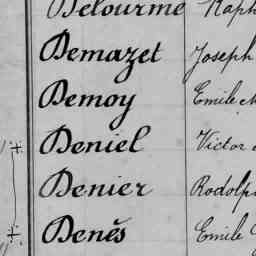 Delourme Raph
Demazet Joseph
Demoy Emile
Deniel Victor
Denier Rodolp
Denès Emile